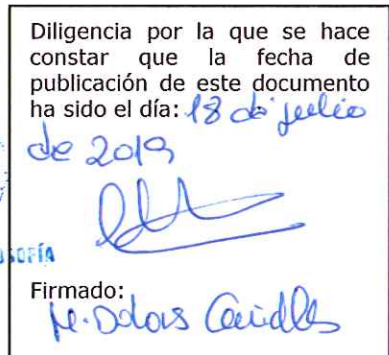 Diligencia por la que se hace
constar que la fecha de
publicación de este documento
ha sido el día: 18 de julio
de 2019
SOFÍA
Firmado:
M. Dolors